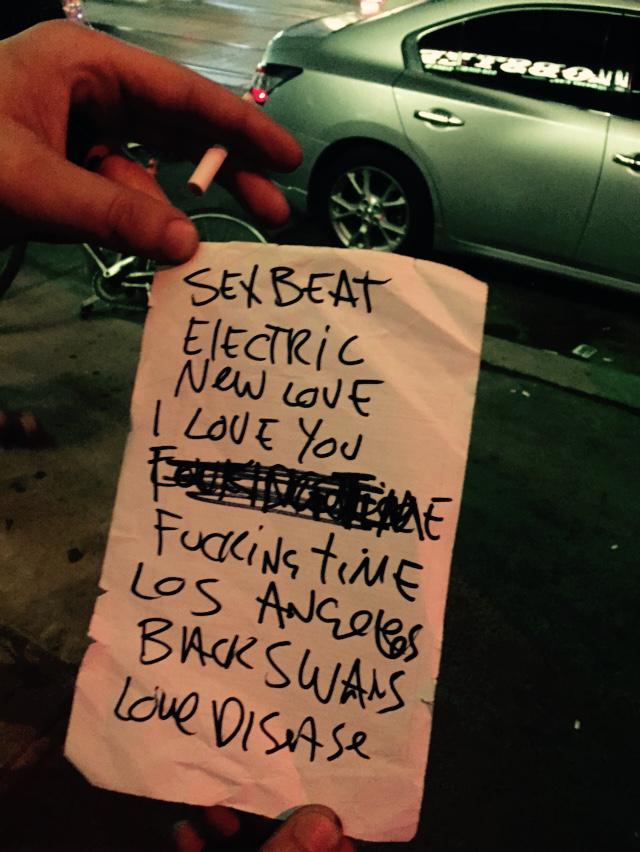 SEX BEAT
ELECTRIC
NEW LOVE
I LOVE YOU
FUCKING TIME
LOS ANGELES
BLACK SWANS
LOVE DISEASE